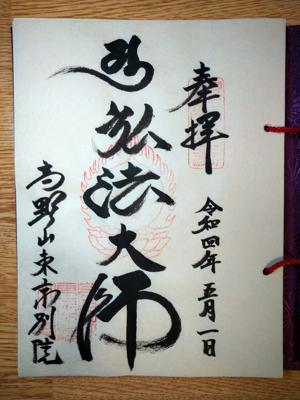 奉拝
令和四年五月一日
弘法大師
高野山東京別院